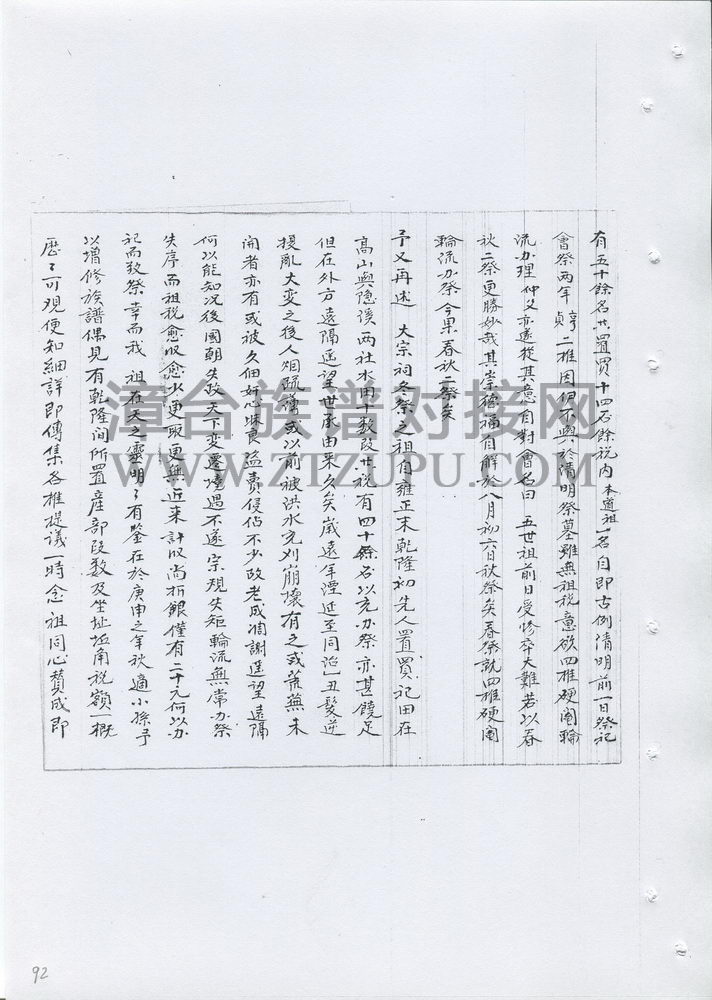 有五十餘名共置買十四石餘税内本道祖一名自即古例清明前一日祭祀
會祭兩年貞亨二推因祖不與於清明祭墓雖無祖税意欲四推硬閹輪
流办理仲父亦遂從其意自對會名曰 五世祖前日受慘卒大難若以春
秋二祭更勝妙哉其崇德福自解於八月初六日秋祭矣春祭就四推硬閹
輪流办祭今果春秋二祭矣
予又再述 大宗祠冬祭之祖自雍正末乾隆初先人置買祀田在
高山與隐溪兩社水田十数段共税有四十餘石以充办祭亦甚饒足
但在外方遠隔遥望世承由来久矣歲遠年湮延至同治丑髮逆
擾亂大变之後人烟疏 或以前被洪水充刈崩壞有之或荒蕪未
開者亦有或被久佃奸心昧良盗賣侵佔不少故老成凋謝遥望遠隔
何以能知况後國朝失政天下变遷 遇不遂宗規失矩輪流無常办祭
失序而祖税愈收愈少更取更無近来計收尚折銀僅有二十元何以办
祀而致祭幸而我 祖在天之靈明了有鑒在於庚申之年秋適小孫予
以增修族譜偶見有乾隆间所置産部段数及坐址坵角税額一概
歷了可观便知細詳即傳集各推提議一時念祖同心賛成即
漳台族谱对接网
WWW.ZTZUPU.COM
92